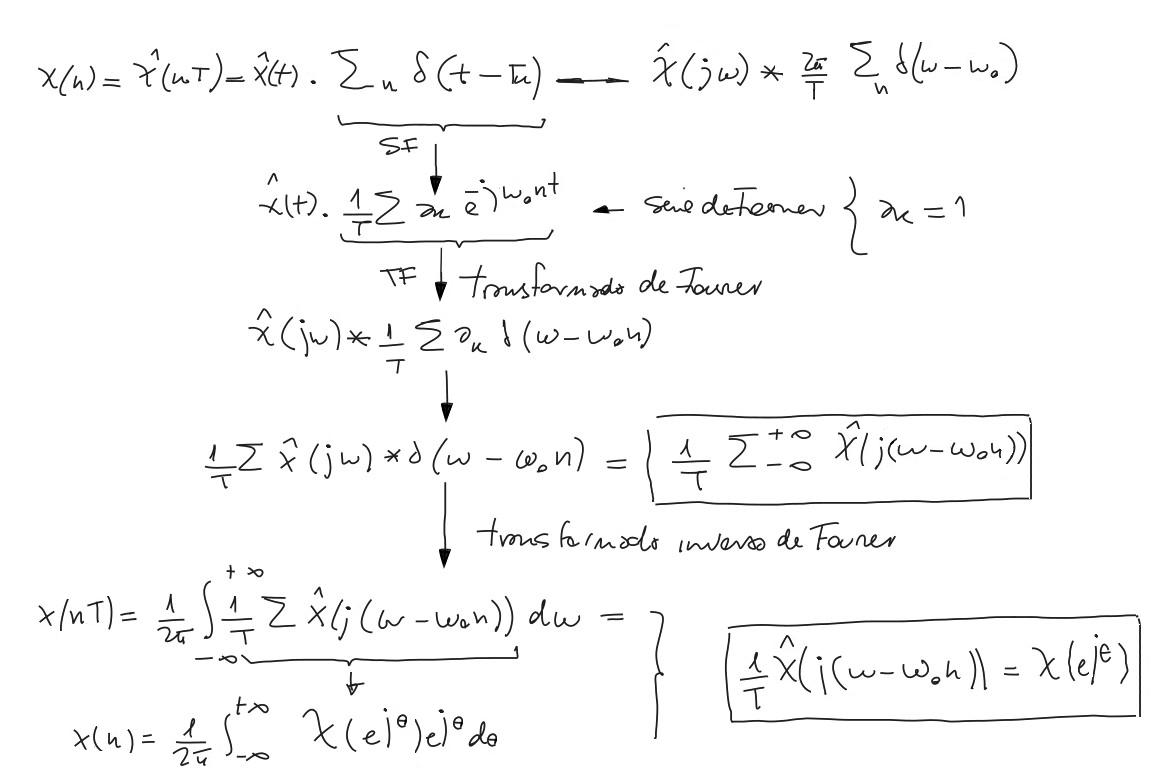 x(n) = x̂(nT) = x̂(t) · Σ_n δ(t − Tn) → X̂(jω) * 2π/T Σ_n δ(ω − ω₀)
SF
x̂(t) · 1/T Σ a_k e^{-jω₀nt} ← serie de Fourier { a_k = 1
TF ↓ transformada de Fourier
X̂(jω) * 1/T Σ a_k δ(ω − ω₀n)
1/T Σ X̂(jω) * δ(ω − ω₀n) = 1/T Σ_{−∞}^{+∞} X̂(j(ω − ω₀n))
transformada inversa de Fourier
x(nT) = 1/2π ∫_{−∞}^{+∞} 1/T Σ X̂(j(ω − ω₀n)) dω = }
1/T X̂(j(ω − ω₀n)) = X(e^{jθ})
x(n) = 1/2π ∫_{−∞}^{+∞} X(e^{jθ}) e^{jθ} dθ